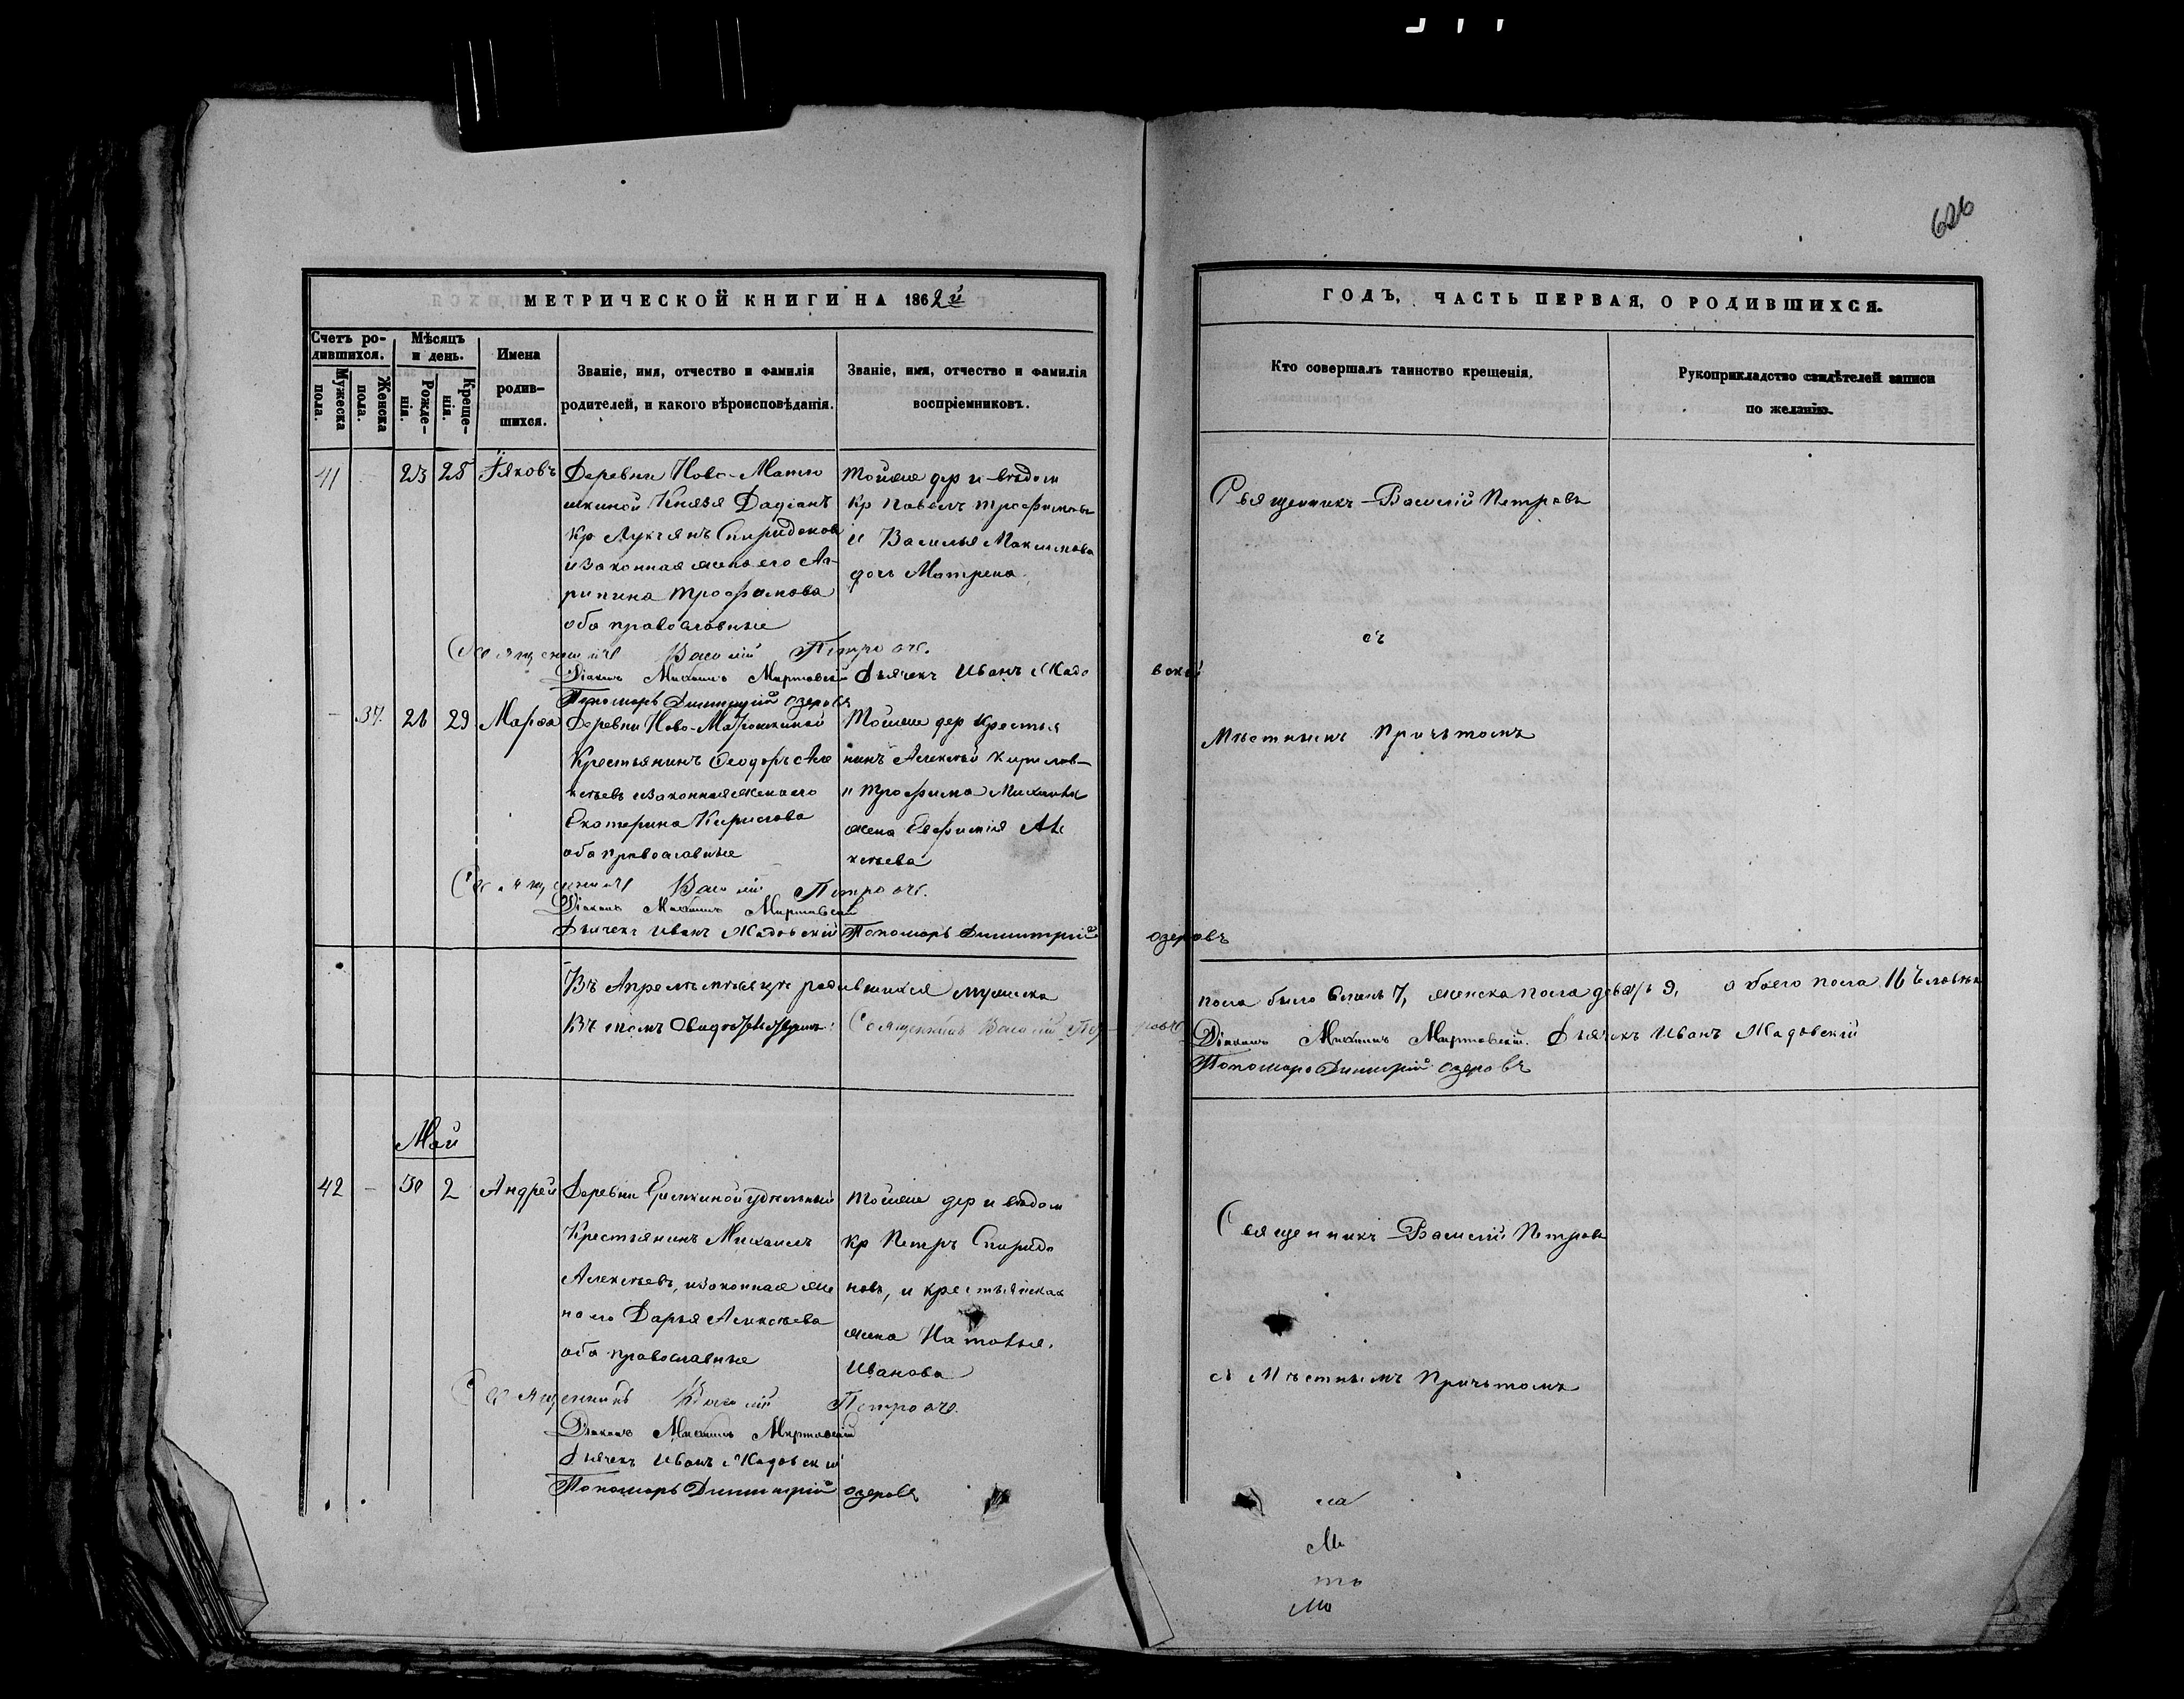 626
МЕТРИЧЕСКОЙ КНИГИ НА 1862й
ГОДЪ, ЧАСТЬ ПЕРВАЯ, О РОДИВШИХСЯ.
Счетъ ро-
дившихся.
Мужеска
пола.
Женска
пола.
Мѣсяцъ
и день.
Рожде-
нія.
Креще-
нія.
Имена
родив-
шихся.
Званіе, имя, отчество и фамилія
родителей, и какого вѣроисповѣданія.
Званіе, имя, отчество и фамилія
воспріемниковъ.
Кто совершалъ таинство крещенія.
Рукоприкладство свидѣтелей записи
по желанію.
41
23
25
Іяковъ
Деревни Ново-Матю
шкиной Князя Дадіанъ
Кр Лукіянъ Спиридонов
и законная жена его Аг-
рипина Трофимова
оба православные
тойже дер и вѣдом
Кр Павелъ Трофимовъ
и Василья Максимова
дочь Матрена
Священникъ Василій Петровъ
съ
Мѣстнымъ Причьтомъ
Священникъ Василій Петровъ.
Діаконъ Михаилъ Миртовскій Дьячекъ Иванъ Жадо вскій
Пономарь Димитрій Озеровъ
37.
28
29
Марѳа
Деревни Ново-Матюшкиной
Крестьянинъ Ѳеодоръ Але
ксѣевъ и законная жена его
Екатерина Кирилова
оба православные
Тойже дер Крестья
нинъ Алексѣй Кирилов-
и Трофима Михайл
жена Евфимія Але
ксѣева
Священникъ Василій Петровъ.
Діаконъ Михаилъ Миртовскій
Дьячекъ Иванъ Жадовскій Пономарь Димитрій Озеровъ
Въ Апрелѣ мѣсяцѣ родившихся мужеска пола было 7, женска пола девять 9, обоего пола 16 Человѣкъ
Въ томъ Священникъ Василій Петровъ Діаконъ Михаилъ Миртовскій. Дьячекъ Иванъ Жадовскій
Пономарь Димитрій Озеровъ
Май
42
30
2
Андрей
Деревни удѣльный
Крестьянинъ Михаилъ
Алексѣевъ, и законная же
на его Дарья Алексѣева
оба православные
Тойже дер и вѣдом
Кр Петръ Спиридо
новъ, и крестьянская
жена Наталья.
Иванова
Священникъ Василій Петровъ
съ Мѣстнымъ Причьтомъ
Священникъ Василій Петровъ.
Діаконъ Михаилъ Миртовскій
Дьячекъ Иванъ Жадовскій
Пономарь Димитрій Озеровъ